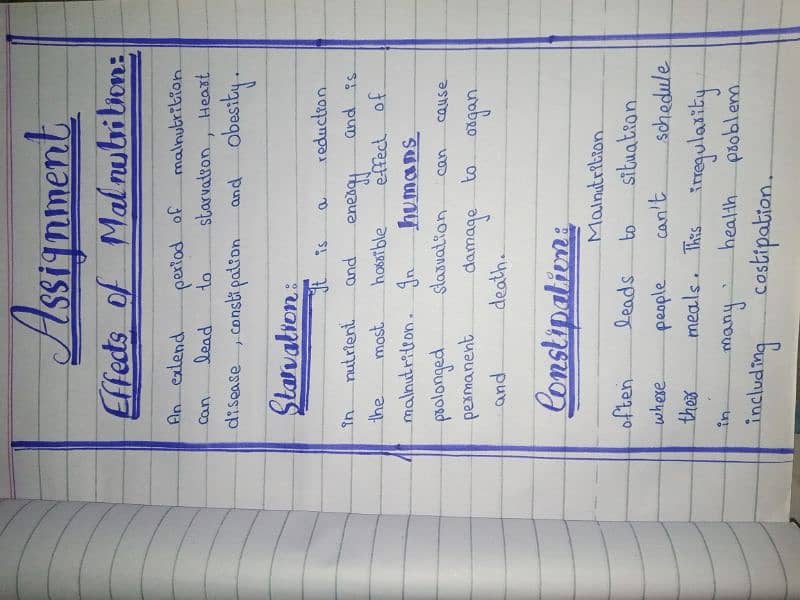 Assignment
Effects of Malnutrition:
An extend period of malnutrition
can lead to starvation, Heart
disease, constipation and Obesity.
Starvation:
It is a reduction
in nutrient and energy and is
the most horrible effect of
malnutrition. In humans
prolonged starvation can cause
permanent damage to organ
and death.
Constipation:
Malnutrition
often leads to situation
where people can't schedule
ther meals. This irregularity
in many health problem
including costipation.